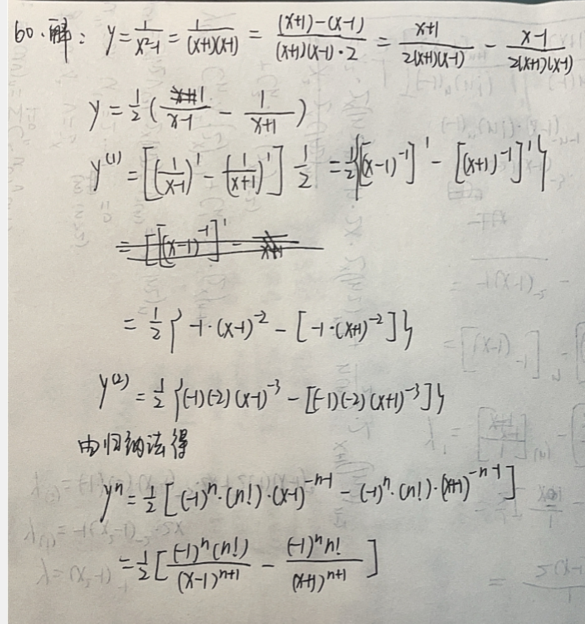 60.解: y = 1/(x²-1) = 1/((x+1)(x-1)) = ((x+1)-(x-1))/((x+1)(x-1)·2) = (x+1)/(2(x+1)(x-1)) - (x-1)/(2(x+1)(x-1))
y = 1/2 ( 1/(x-1) - 1/(x+1) )
y⁽¹⁾ = [(1/(x-1))' - (1/(x+1))'] 1/2 = 1/2{[(x-1)⁻¹]' - [(x+1)⁻¹]'}
= [[(x-1)⁻¹]' -
= 1/2 { -1·(x-1)⁻² - [-1·(x+1)⁻²]}
y⁽²⁾ = 1/2 {(-1)(-2)(x-1)⁻³ - [(-1)(-2)(x+1)⁻³]}
由归纳法得
yⁿ = 1/2 [(-1)ⁿ·(n!)·(x-1)⁻ⁿ⁻¹ - (-1)ⁿ·(n!)·(x+1)⁻ⁿ⁻¹]
= 1/2 [ (-1)ⁿ(n!)/(x-1)ⁿ⁺¹ - (-1)ⁿn!/(x+1)ⁿ⁺¹ ]